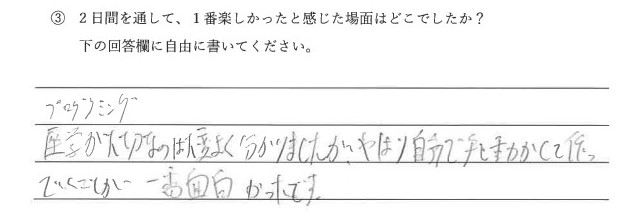 ③ 2日間を通して、1番楽しかったと感じた場面はどこでしたか？
下の回答欄に自由に書いてください。
プログラミング
座学が大切なのは良くよく分かりましたが、やはり自分で手を動かして作っ
ていくことが一番面白かったです。